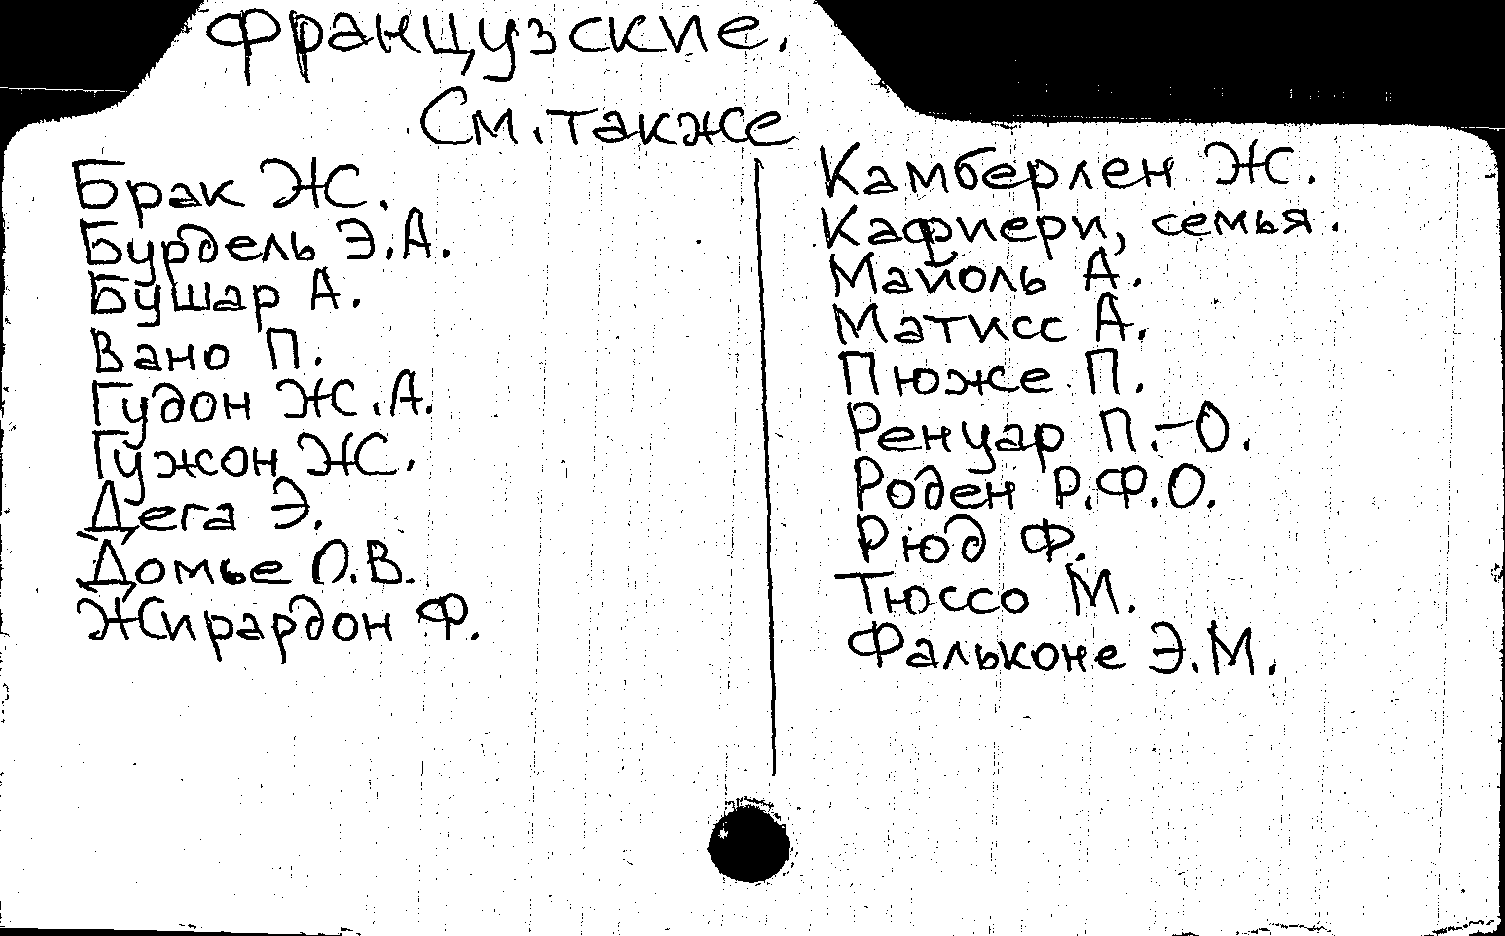 Французские.
См. также
Брак Ж.
Бурдель Э.А.
Бушар А.
Вано П.
Гудон Ж.А.
Гужон Ж.
Дега Э.
Домье О.В.
Жирардон Ф.
Камберлен Ж.
Кафиери, семья.
Майоль А.
Матисс А.
Пюже П.
Ренуар П.-О.
Роден Р.Ф.О.
Рюд Ф.
Тюссо М.
Фальконе Э.М.